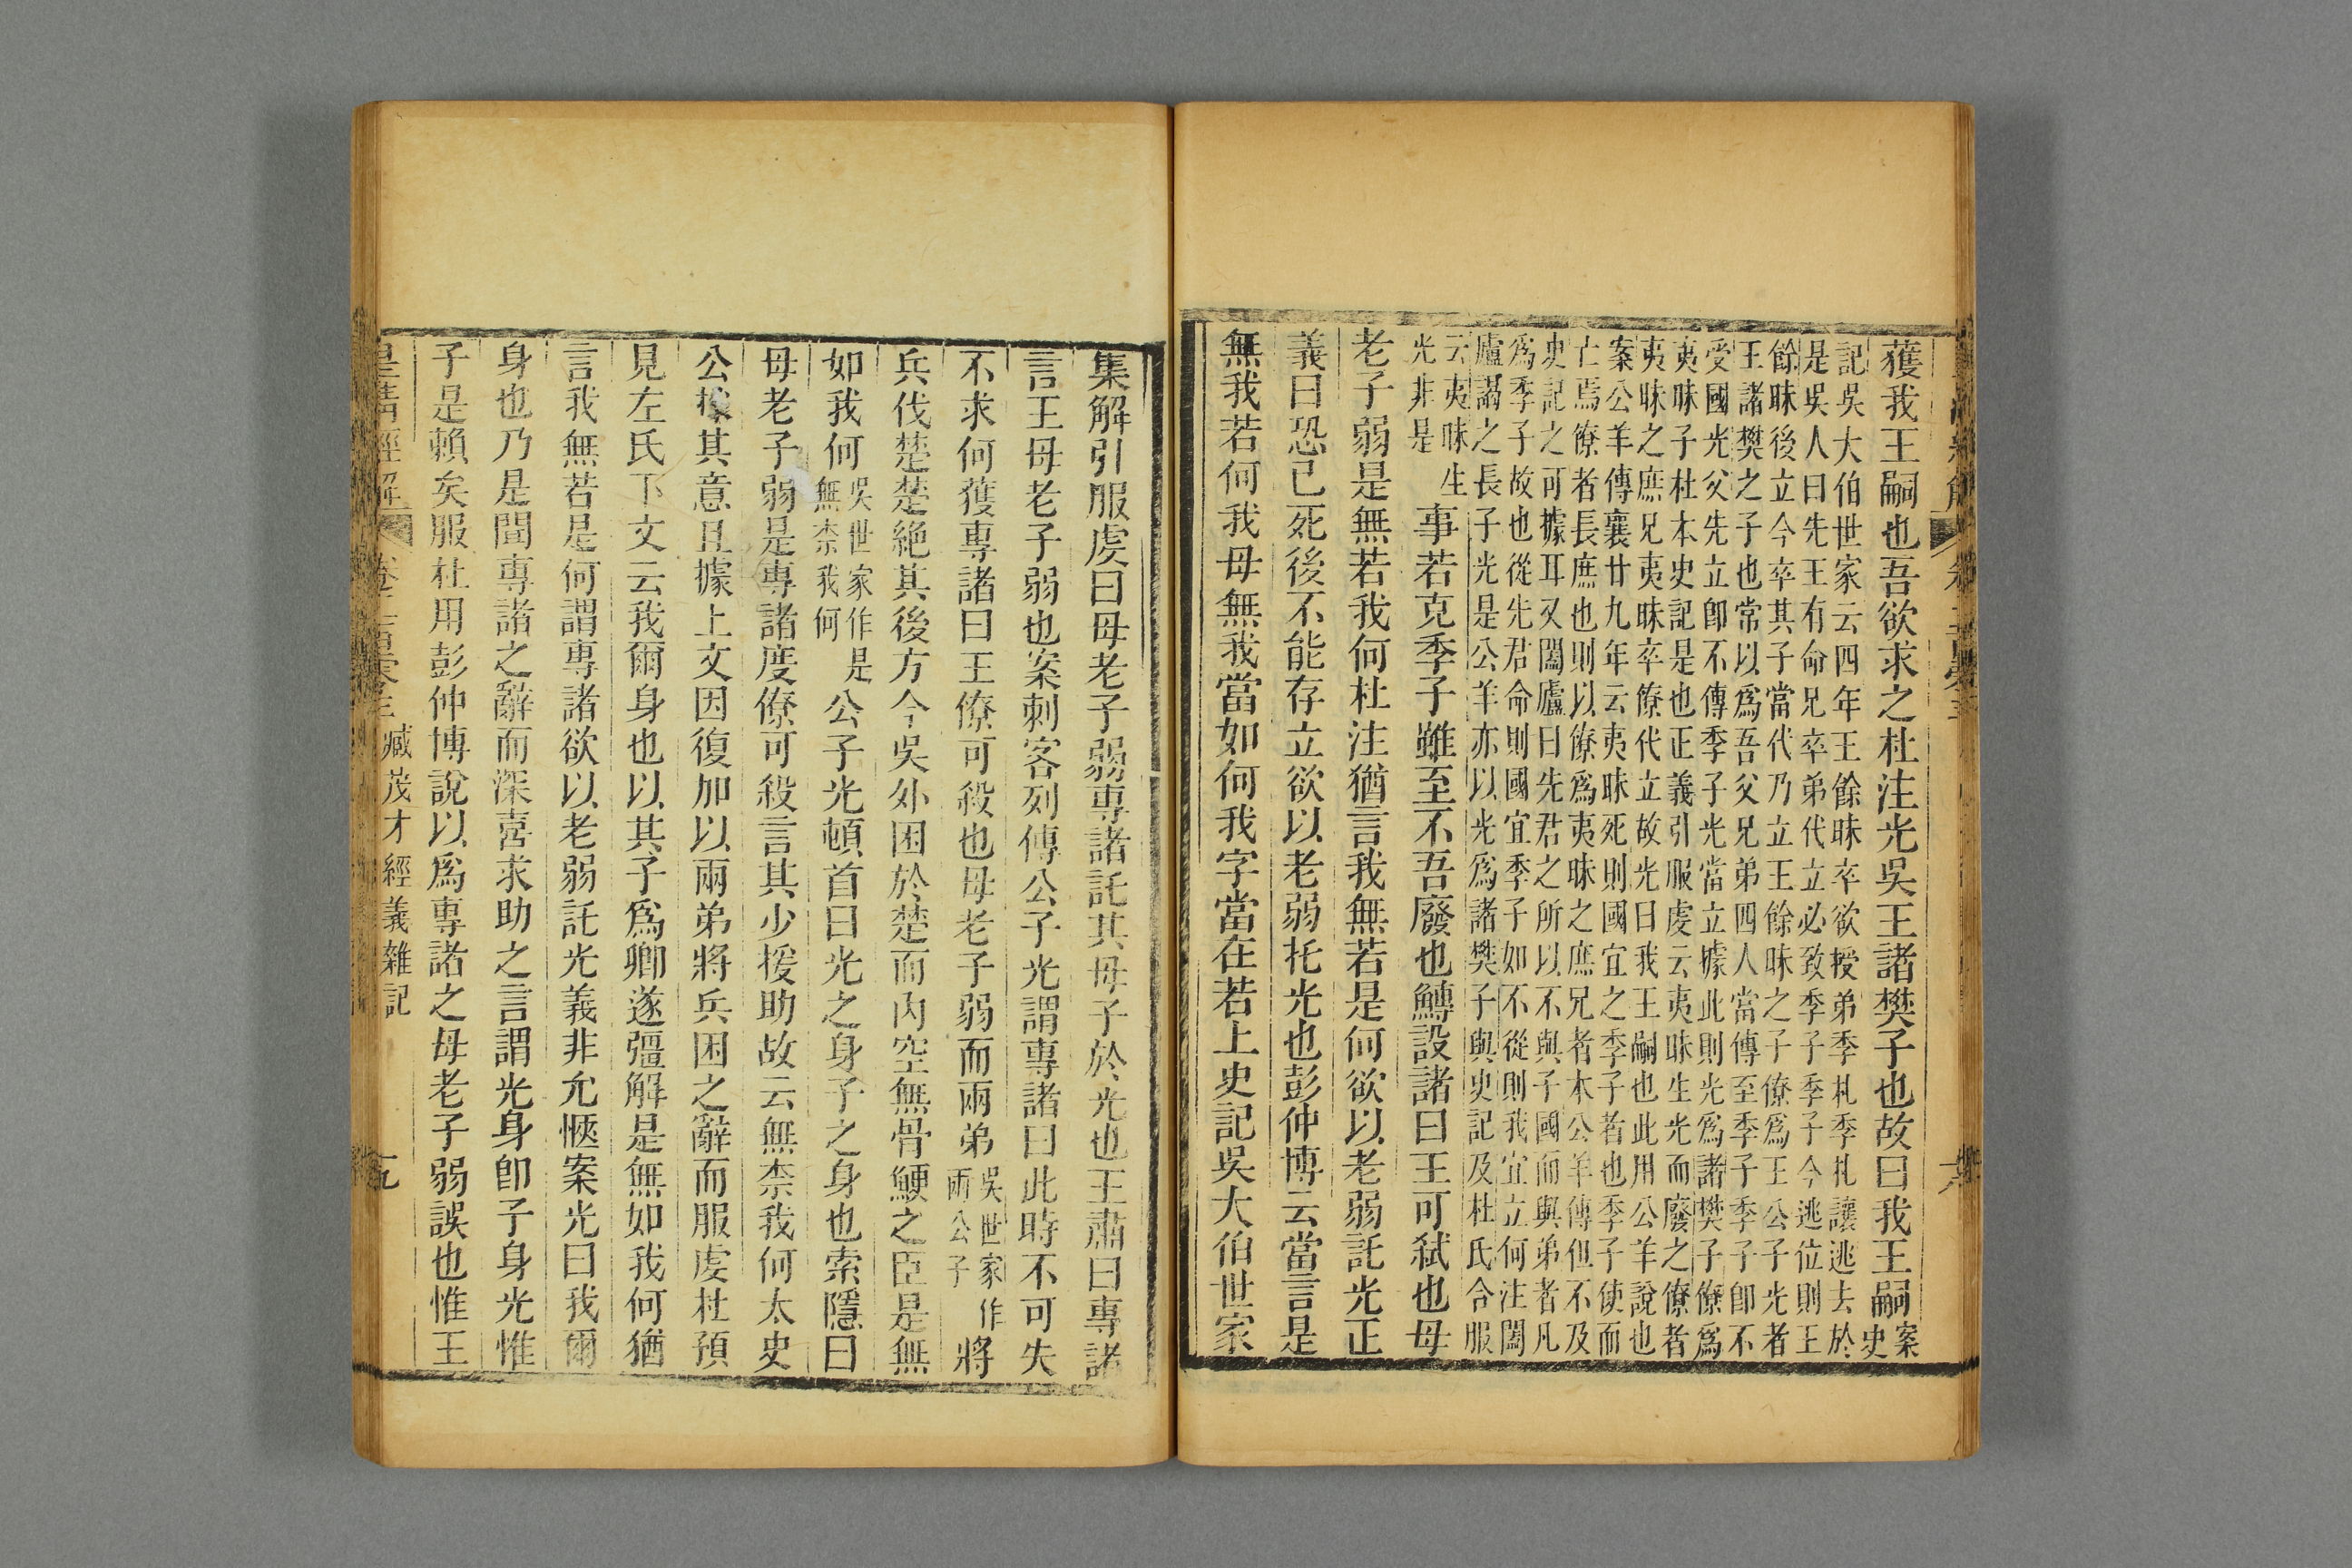 獲我王嗣也吾欲求之杜注光吳王諸樊子也故曰我王嗣案史
記吳大伯世家云四年王餘昧卒欲授弟季札季札讓逃去於
是吳人曰先王有命兄卒弟代立必致季子季子今逃位則王
餘昧後立今卒其子當代乃立王餘昧之子僚為王公子光者
王諸樊之子也常以為吾父兄弟四人當傳至季子季子即不
受國光父先立即不傳季子光當立據此則光為諸樊子僚為
夷昧子杜本史記是也正義引服虔云夷昧生光而廢之僚者
夷昧之庶兄夷昧卒僚代立故光曰我王嗣也此用公羊說也
案公羊傳襄廿九年云夷昧死則國宜之季子者也季子使而
亡焉僚者長庶也則以僚為夷昧之庶兄者本公羊傳但不及
史記之可據耳又闔廬曰先君之所以不與子國而與弟者凡
為季子故也從先君命則國宜季子如不從則我宜立何注闔
廬謁之長子光是公羊亦以光為諸樊子與史記及杜氏合服
云夷昧生
光非是
事若克季子雖至不吾廢也鱄設諸曰王可弒也母
老子弱是無若我何杜注猶言我無若是何欲以老弱託光正
義曰恐已死後不能存立欲以老弱托光也彭仲博云當言是
無我若何我母無我當如何我字當在若上史記吳大伯世家
集解引服虔曰母老子弱專諸託其母子於光也王肅曰專諸
言王母老子弱也案刺客列傳公子光謂專諸曰此時不可失
不求何獲專諸曰王僚可殺也母老子弱而兩弟吳世家作兩公子將
兵伐楚楚絕其後方今吳外困於楚而內空無骨鯁之臣是無
如我何吳世家作是無柰我何公子光頓首曰光之身子之身也索隱曰
母老子弱是專諸度僚可殺言其少援助故云無柰我何太史
公據其意且據上文因復加以兩弟將兵困之辭而服虔杜預
見左氏下文云我爾身也以其子為卿遂彊解是無如我何猶
言我無若是何謂專諸欲以老弱託光義非允愜案光曰我爾
身也乃是聞專諸之辭而深喜求助之言謂光身即子身光惟
子是賴矣服杜用彭仲博說以為專諸之母老子弱誤也惟王
臧茂才經義雜記